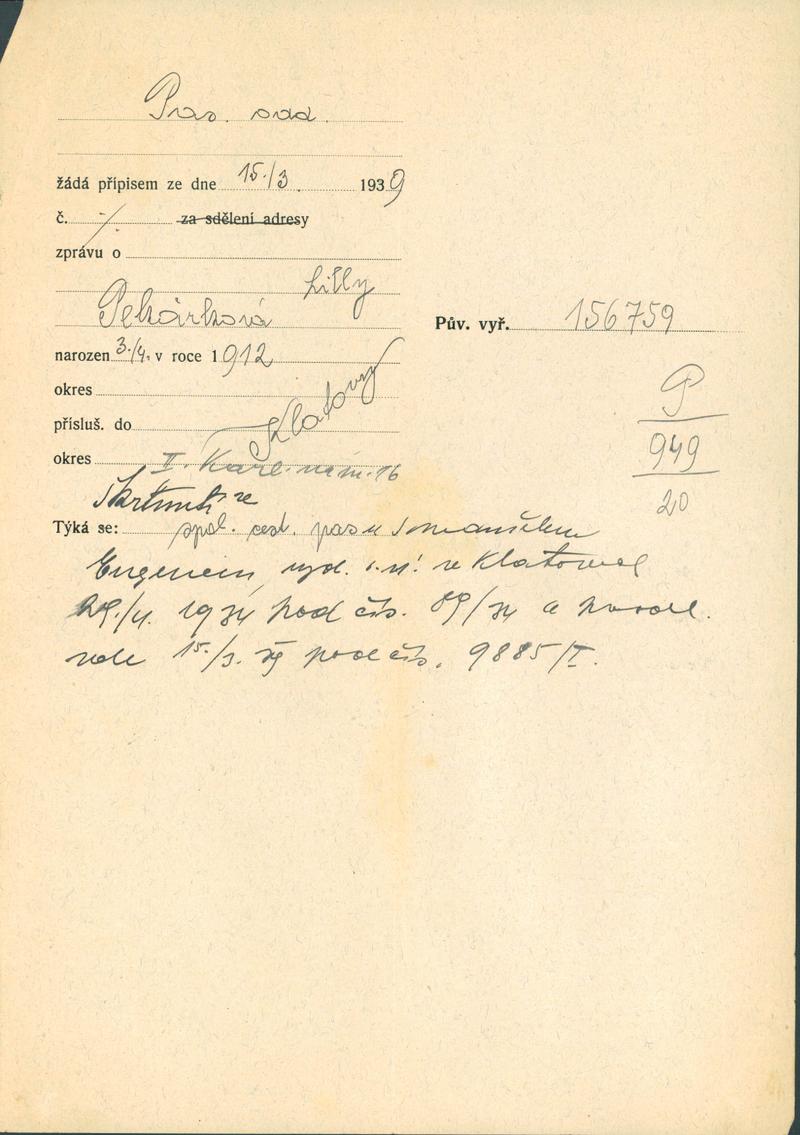 Pas. odd.
žádá přípisem ze dne 15./3. 1939
č. ./. za sdělení adresy
zprávu o
Lilly
Pekárková
narozen 3./4. v roce 1912
Pův. vyř. 156759
okres
P
přísluš. do Klatovy
949
okres II. Karl. nám. 16
20
Škrtnutí ze
Týká se: spol. cest. pasu s manželem
Eugenem, vyd. o. ú. v Klatovech
29./4. 1934 pod čís. 89/34 a prodl.
zde 15./3. 39 pod čís. 9885/I.